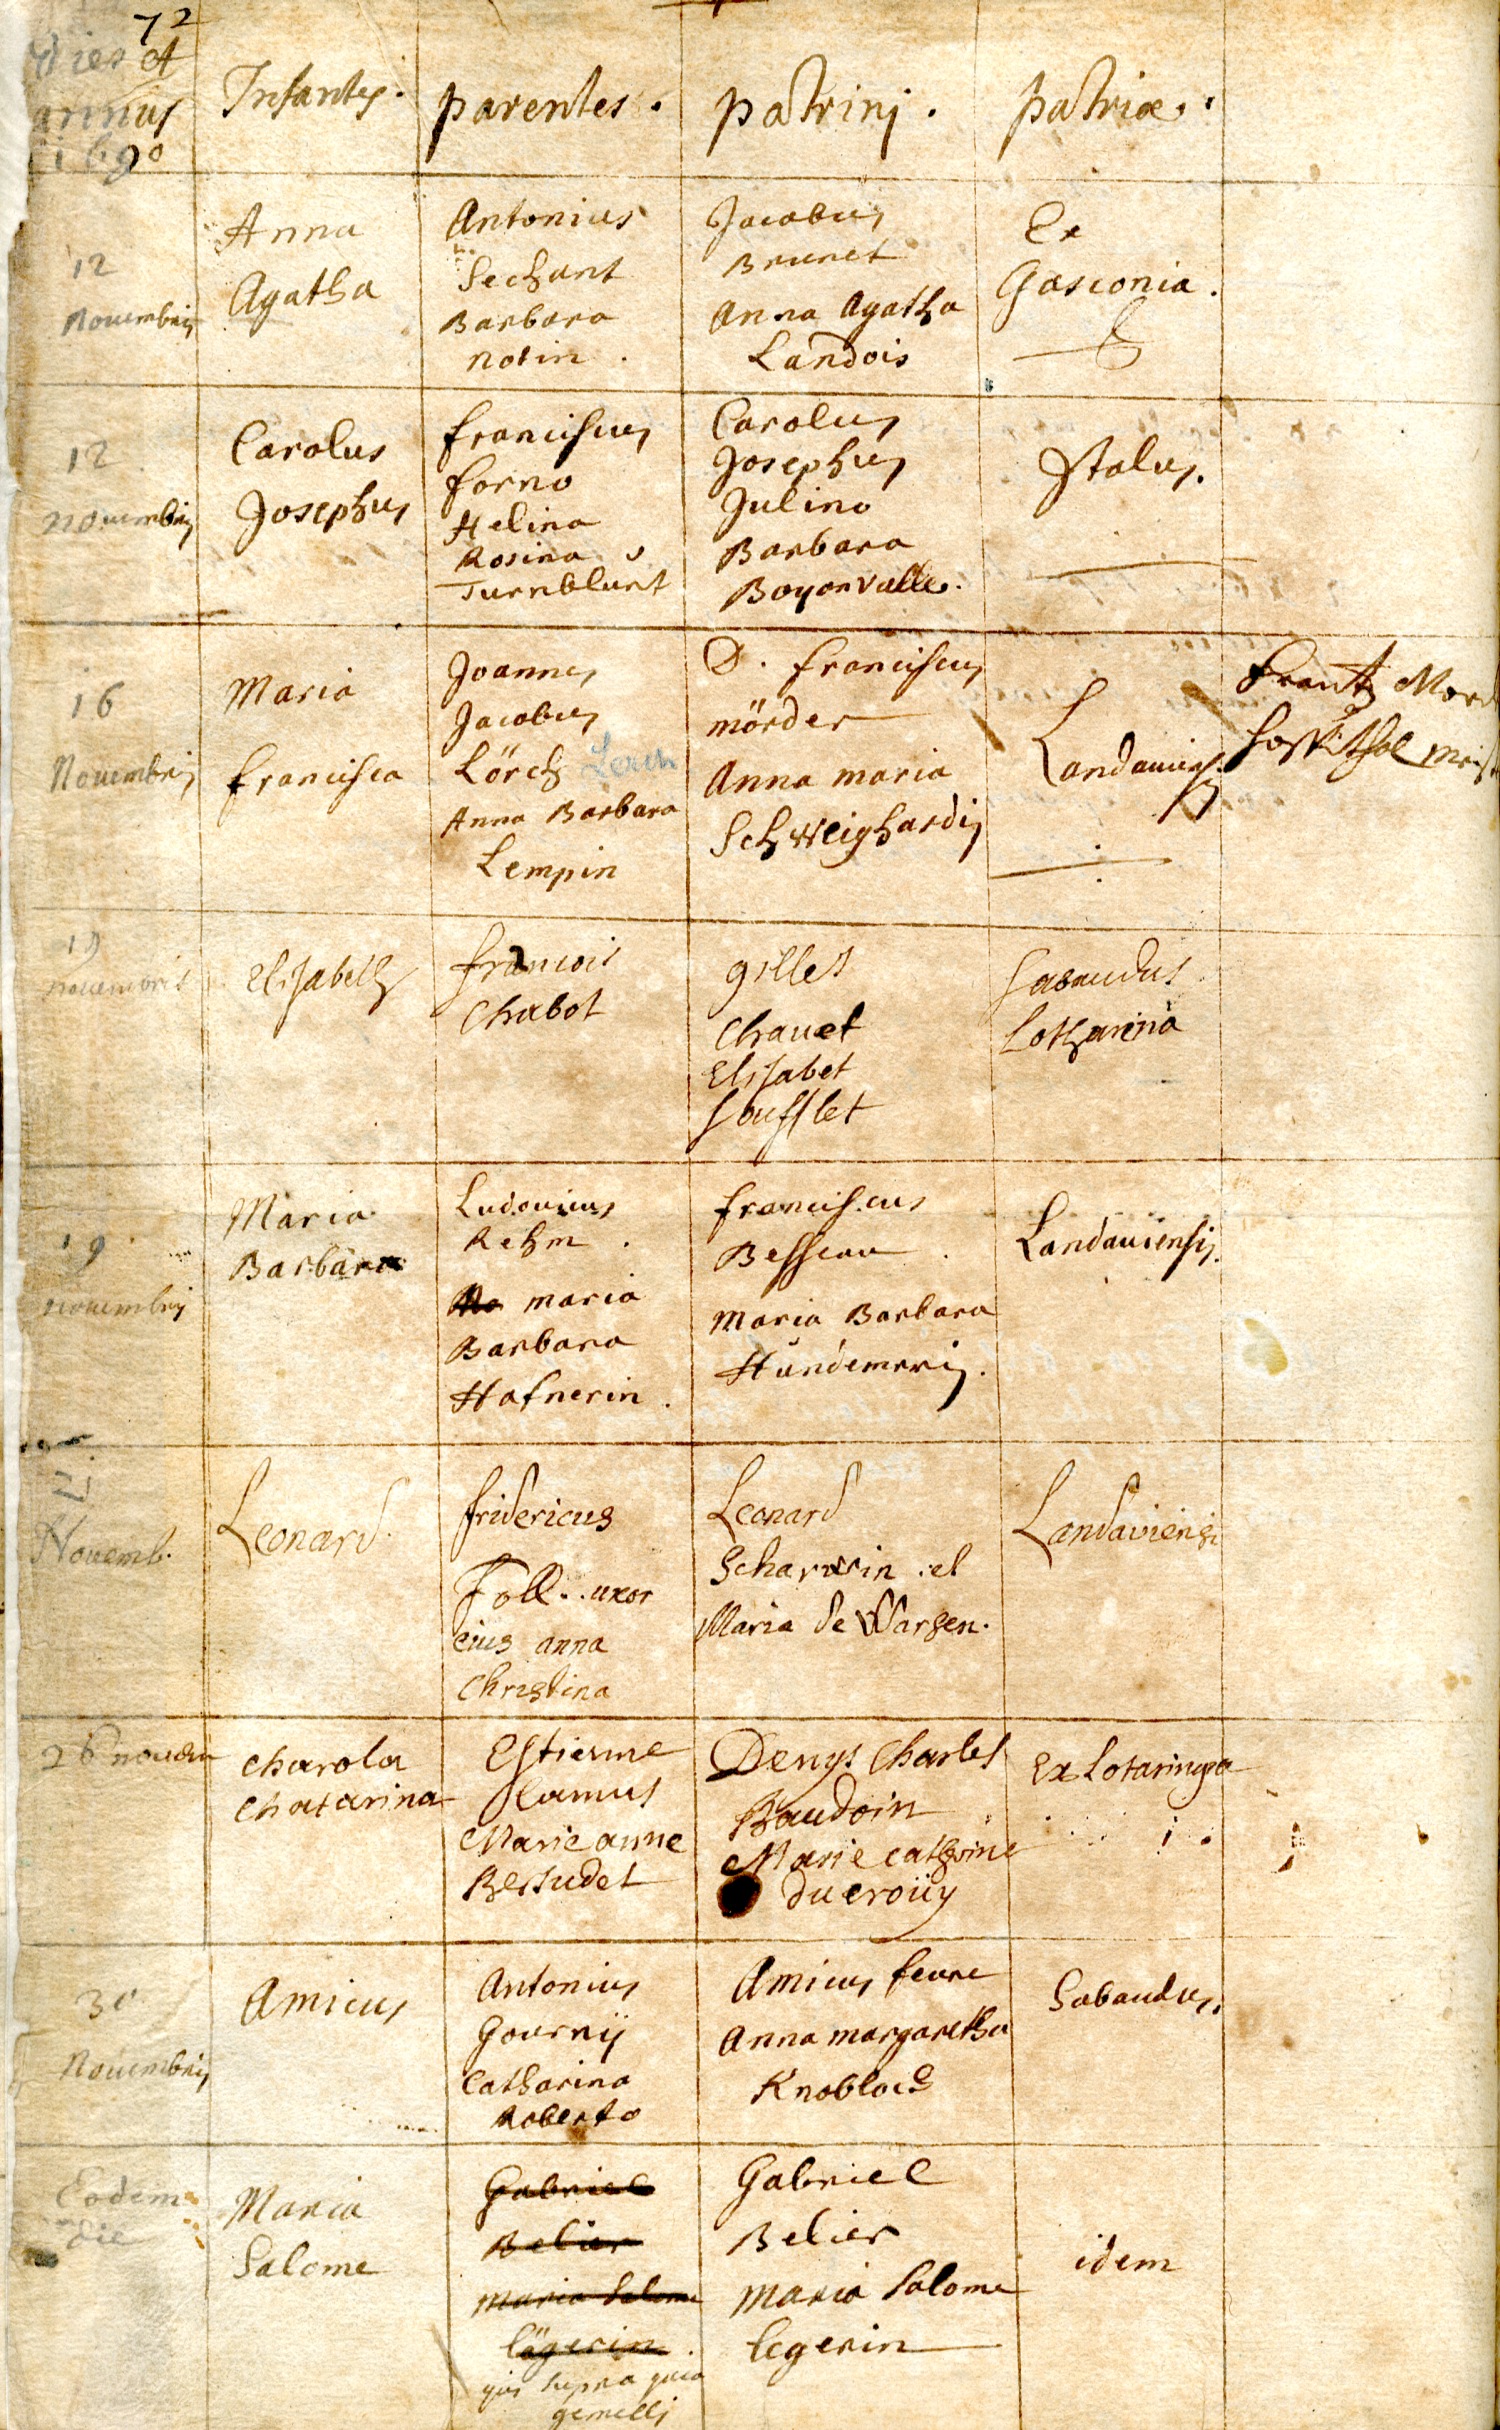 72
dies et
annus
1690
Infantes.
parentes.
patrinj.
patriæ.
12
Nouembris
Anna
Agatha
Antonius
Sechant
Barbara
notin.
Jacobus
Brunet
Anna Agatha
Landois
Ex
Gasconia.
12
nouembris
Carolus
Josephus
franciscus
forno
Helina
Rosina
Turnblunt
Carolus
Josephus
Julino
Barbara
Boyonvalle.
Italus.
16
Nouembris
Maria
francisca
Joannes
Jacobus
Lörch Lerch
Anna Barbara
Lempin
D. franciscus
mörder
Anna maria
Schweighardis
Landauiensis
frantz
19
nouembris
Elisabeth
francois
Chabot
gilles
Chauet
Elisabet
soufflet
sabaudus
Lotharina
19
nouembris
Maria
Barbara
Ludouicus
Rehm.
maria
Barbara
Hafnerin.
franciscus
Besseau.
Maria Barbara
Hundemeris.
Landauiensis.
Novemb.
Leonard.
fridericus
Foll.. uxor
eius anna
Christina
Leonard
Scharwin .et
Maria de Warsen.
Landaviensi
26 nouem
charola
chatarina
Estienne
Camus
Marie anne
Bersudet
Denys Charles
Baudoin
Marie catherine
du croüy
Ex Lotaringia
30
Nouembris
Amicus
Antonius
Gournij
Catharina
Roberto
Amicus feure
Anna margaretha
Knobloch
Sabaudus.
Eodem
die
Maria
Salome
Gabriel
Belier
Maria Salome
Lägerin
qui supra quia
gemelli
Gabriel
Belier
Maria Salome
legerin
idem